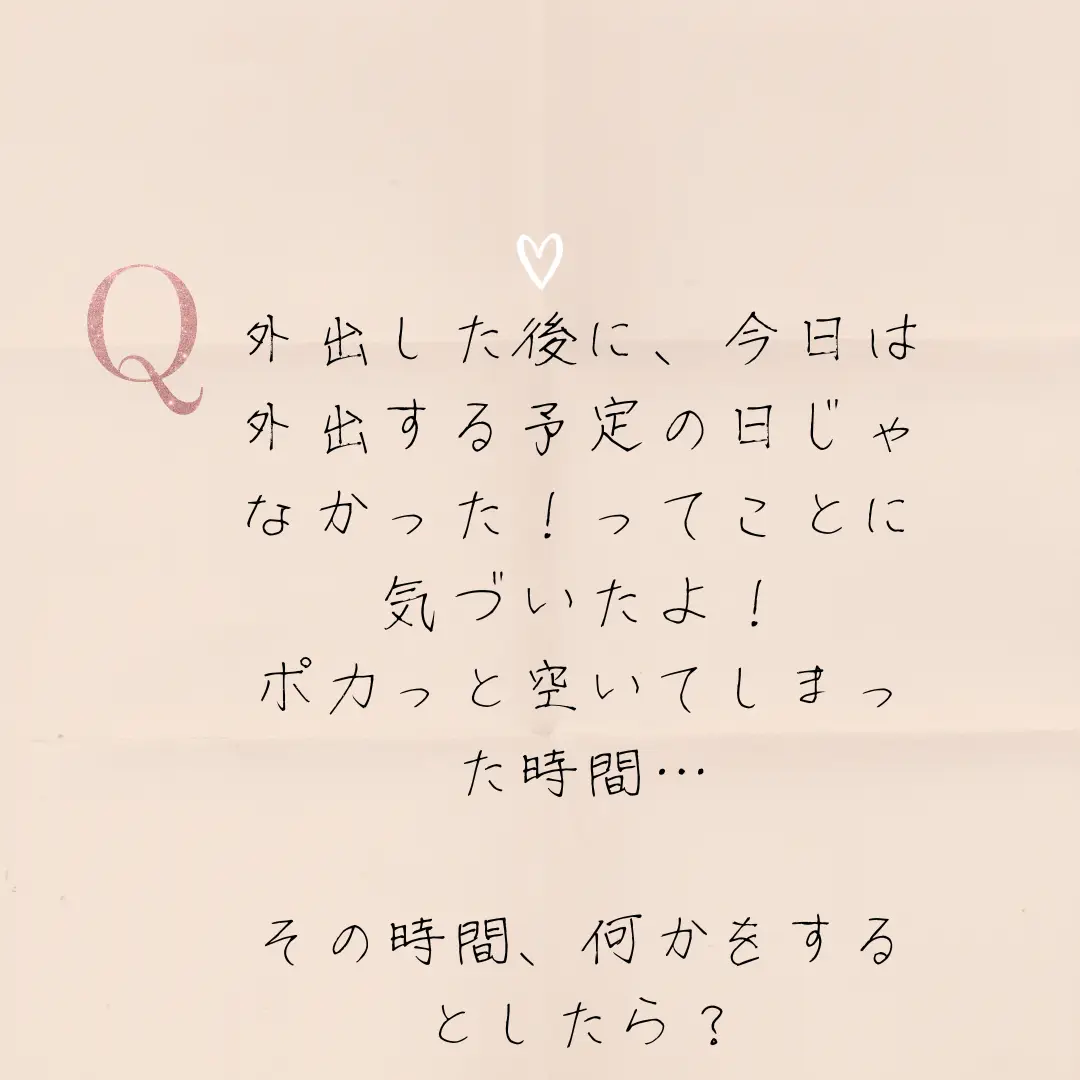 Q
外出した後に、今日は
外出する予定の日じゃ
なかった！ってことに
気づいたよ！
ポカっと空いてしまっ
た時間…
その時間、何かをする
としたら？